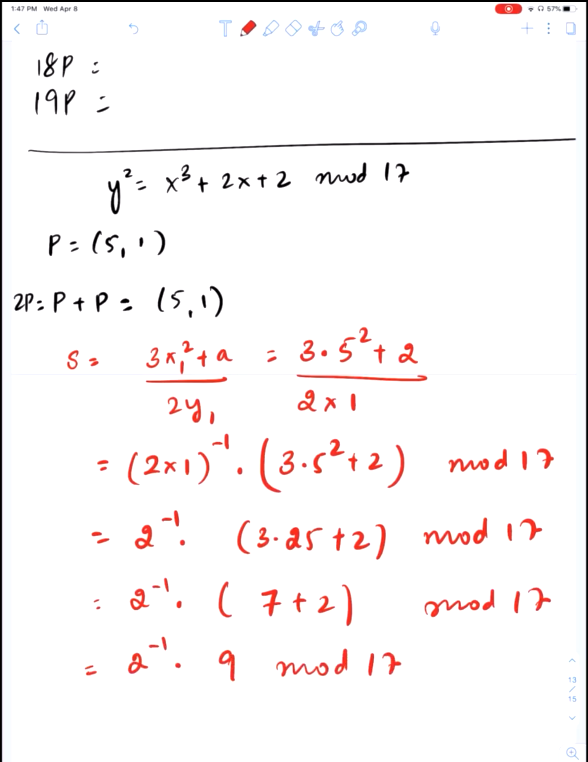 1:47 PM Wed Apr 8 57%
T
18P =
19P =
y² = x³ + 2x + 2 mod 17
P = (5, 1)
2P = P + P = (5, 1)
S = 3x₁² + a / 2y₁ = 3·5² + 2 / 2 × 1
= (2×1)⁻¹ · (3·5² + 2) mod 17
= 2⁻¹ · (3·25 + 2) mod 17
= 2⁻¹ · (7 + 2) mod 17
= 2⁻¹ · 9 mod 17
13
/
15